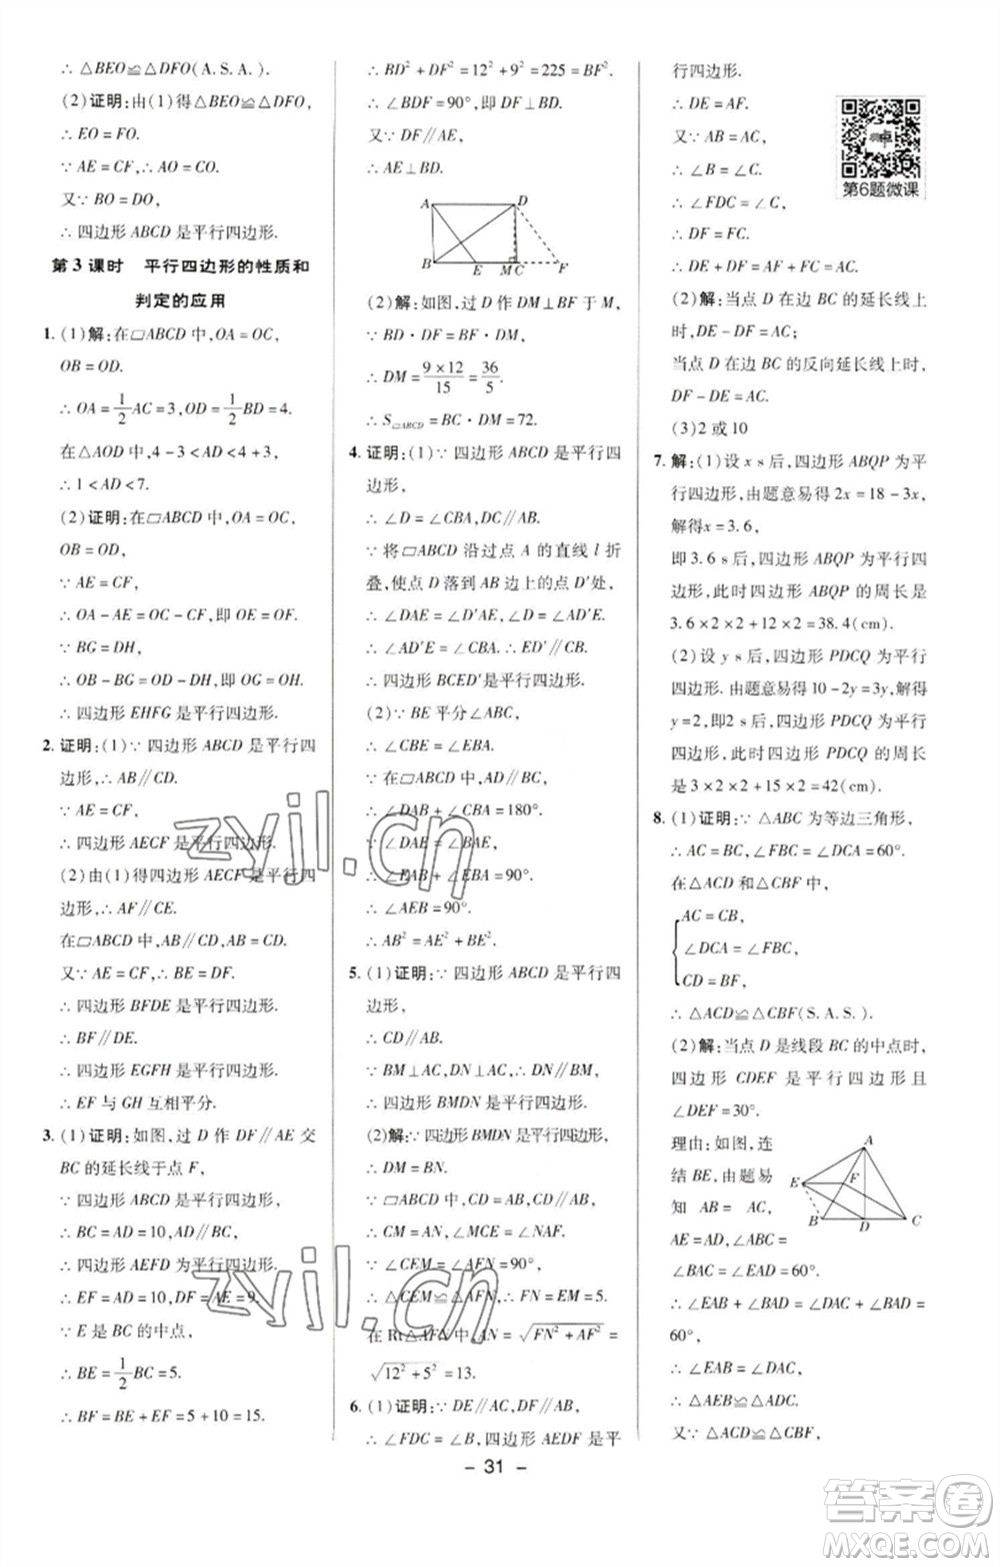 ∴ △BEO≌△DFO(A.S.A.).
(2)证明:由(1)得△BEO≌△DFO,
∴ EO = FO.
∵ AE = CF,∴ AO = CO.
又∵ BO = DO,
∴ 四边形 ABCD 是平行四边形.
第 3 课时 平行四边形的性质和
判定的应用
1. (1)解:在▱ABCD 中,OA = OC,
OB = OD.
∴ OA = 1/2 AC = 3,OD = 1/2 BD = 4.
在△AOD 中,4 - 3 < AD < 4 + 3,
∴ 1 < AD < 7.
(2)证明:在▱ABCD 中,OA = OC,
OB = OD,
∵ AE = CF,
∴ OA - AE = OC - CF,即 OE = OF.
∵ BG = DH,
∴ OB - BG = OD - DH,即 OG = OH.
∴ 四边形 EHFG 是平行四边形.
2. 证明:(1)∵ 四边形 ABCD 是平行四
边形,∴ AB∥CD.
∵ AE = CF,
∴ 四边形 AECF 是平行四边形.
(2)由(1)得四边形 AECF 是平行四
边形,∴ AF∥CE.
在▱ABCD 中,AB∥CD,AB = CD.
又∵ AE = CF,∴ BE = DF.
∴ 四边形 BFDE 是平行四边形.
∴ BF∥DE.
∴ 四边形 EGFH 是平行四边形.
∴ EF 与 GH 互相平分.
3. (1)证明:如图,过 D 作 DF∥AE 交
BC 的延长线于点 F,
∵ 四边形 ABCD 是平行四边形,
∴ BC = AD = 10,AD∥BC.
∴ 四边形 AEFD 为平行四边形.
∴ EF = AD = 10,DF = AE = 9.
∵ E 是 BC 的中点,
∴ BE = 1/2 BC = 5.
∴ BF = BE + EF = 5 + 10 = 15.
∴ BD² + DF² = 12² + 9² = 225 = BF².
∴ ∠BDF = 90°,即 DF⊥BD.
又∵ DF∥AE,
∴ AE⊥BD.
A D
B E M C F
(2)解:如图,过 D 作 DM⊥BF 于 M,
∵ BD · DF = BF · DM,
∴ DM = 9 × 12/15 = 36/5.
∴ S▱ABCD = BC · DM = 72.
4. 证明:(1)∵ 四边形 ABCD 是平行四
边形,
∴ ∠D = ∠CBA,DC∥AB.
∵ 将▱ABCD 沿过点 A 的直线 l 折
叠,使点 D 落到 AB 边上的点 D′处,
∴ ∠DAE = ∠D′AE,∠D = ∠ED′A.
∴ ∠ED′A = ∠CBA. ∴ ED′∥CB.
∴ 四边形 BCED′是平行四边形.
(2)∵ BE 平分∠ABC,
∴ ∠CBE = ∠EBA.
∵ 在▱ABCD 中,AD∥BC,
∴ ∠DAB + ∠CBA = 180°.
∵ ∠DAE = ∠BAE,
∴ ∠EAB + ∠EBA = 90°.
∴ ∠AEB = 90°.
∴ AB² = AE² + BE².
5. (1)证明:∵ 四边形 ABCD 是平行四
边形,
∴ CD∥AB.
∵ BM⊥AC,DN⊥AC,∴ DN∥BM.
∴ 四边形 BMDN 是平行四边形.
(2)解:∵ 四边形 BMDN 是平行四边形,
∴ DM = BN.
∵ 在▱ABCD 中,CD = AB,CD∥AB,
∴ CM = AN,∠MCE = ∠NAF.
∵ ∠CEM = ∠AFN = 90°,
∴ △CEM≌△AFN. ∴ FN = EM = 5.
在 Rt△AFN 中,AN = √(FN² + AF²) =
√(12² + 5²) = 13.
6. (1)证明:∵ DE∥AC,DF∥AB,
∴ ∠FDC = ∠B,四边形 AEDF 是平
行四边形.
∴ DE = AF.
又∵ AB = AC,
∴ ∠B = ∠C.
∴ ∠FDC = ∠C.
∴ DF = FC.
∴ DE + DF = AF + FC = AC.
第6题微课
(2)解:当点 D 在边 BC 的延长线上
时,DE - DF = AC;
当点 D 在边 BC 的反向延长线上时,
DF - DE = AC.
(3)2 或 10
7. 解:(1)设 x s 后,四边形 ABQP 为平
行四边形,由题意易得 2x = 18 - 3x,
解得x = 3.6,
即 3.6 s 后,四边形 ABQP 为平行四
边形,此时四边形 ABQP 的周长是
3.6 × 2 × 2 + 12 × 2 = 38.4(cm).
(2)设 y s 后,四边形 PDCQ 为平行
四边形. 由题意易得 10 - 2y = 3y,解得
y = 2,即2 s后,四边形 PDCQ 为平行
四边形,此时四边形 PDCQ 的周长
是 3 × 2 × 2 + 15 × 2 = 42(cm).
8. (1)证明:∵ △ABC 为等边三角形,
∴ AC = BC,∠FBC = ∠DCA = 60°.
在△ACD 和△CBF 中,
AC = CB,
∠DCA = ∠FBC,
CD = BF,
∴ △ACD≌△CBF(S.A.S.).
(2)解:当点 D 是线段 BC 的中点时,
四边形 CDEF 是平行四边形且
∠DEF = 30°.
理由:如图,连
结 BE,由题易
知 AB = AC,
AE = AD,
∠BAC = ∠EAD = 60°.
A E F B D C
∴ ∠EAB + ∠BAD = ∠DAC + ∠BAD =
60°,
∴ ∠EAB = ∠DAC.
∴ △AEB≌△ADC.
又∵ △ACD≌△CBF,
- 31 -
zyjl.cn
zyjl.cn
答案圈
MXQE.COM